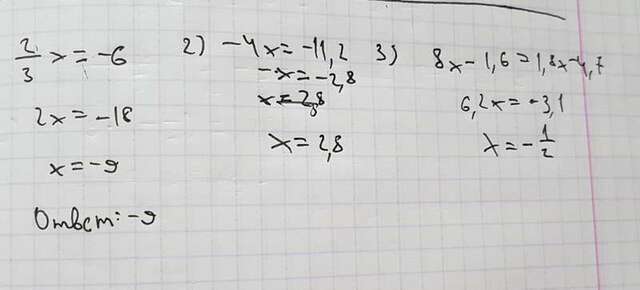 2/3 x = -6
2x = -18
x = -9
Ответ: -9
2) -4x = -11,2
-x = -2,8
x = 2,8
x = 2,8
3) 8x - 1,6 = 1,8x - 4,7
6,2x = -3,1
x = -1/2